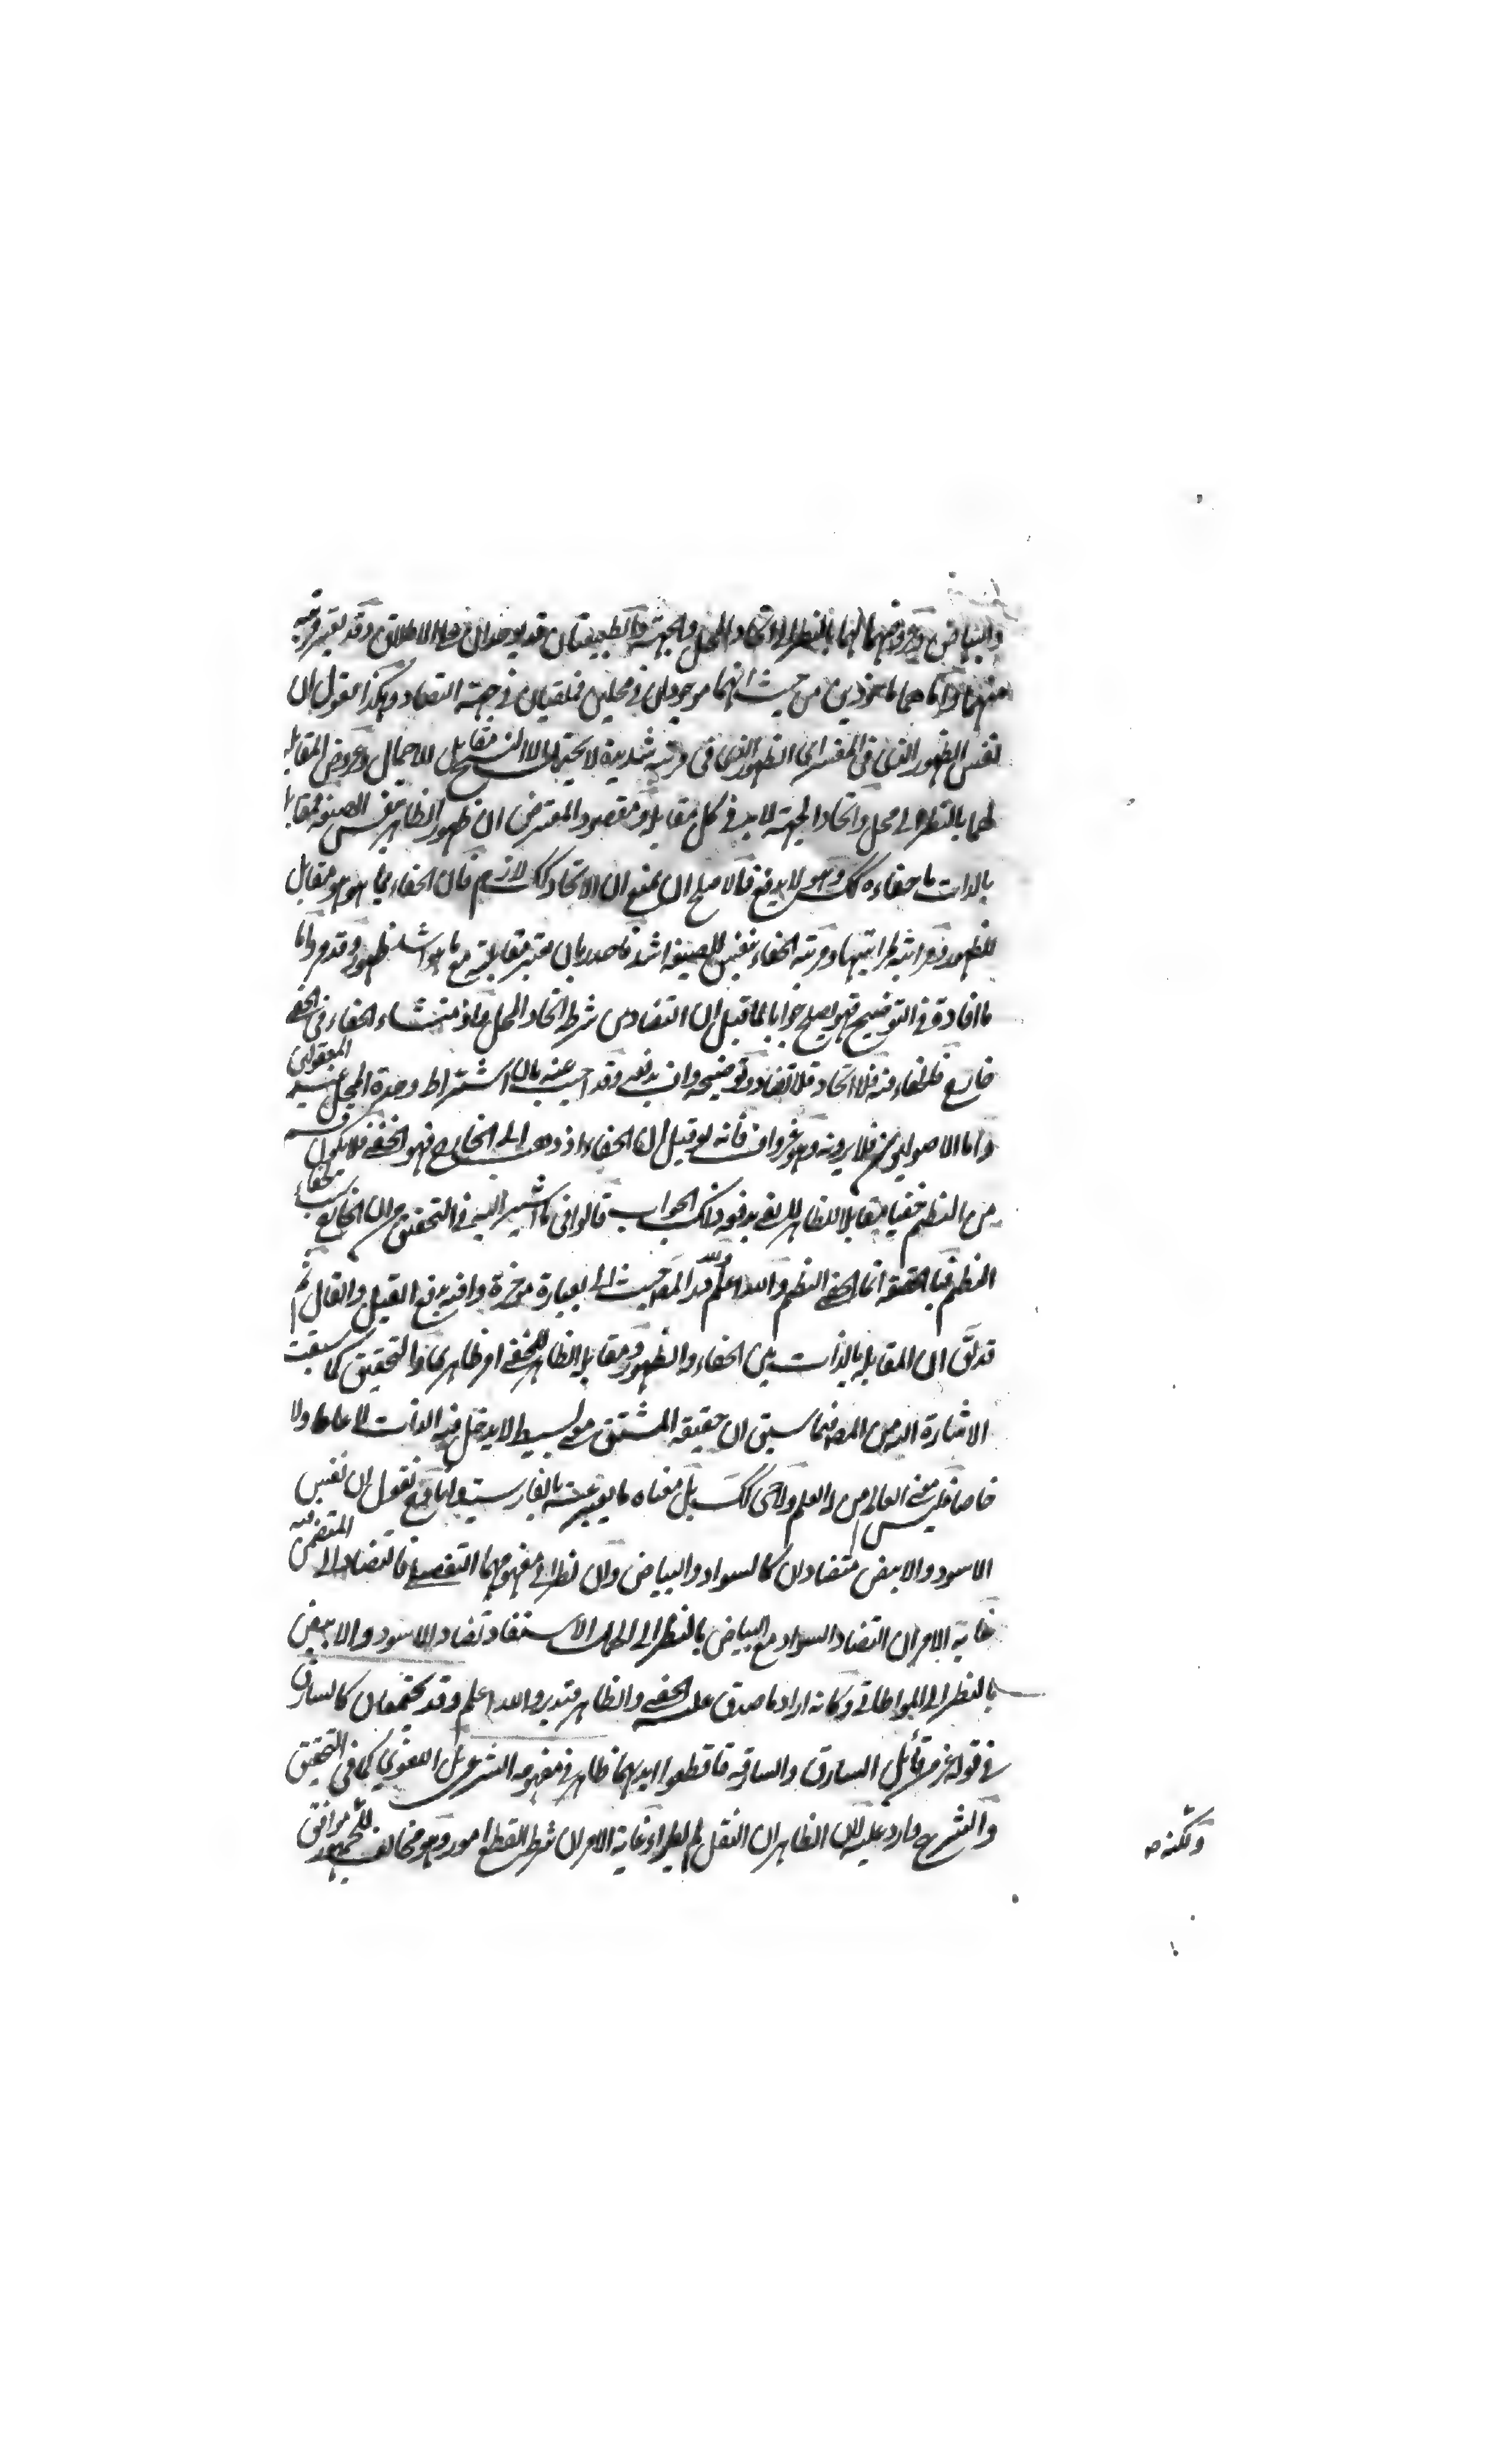 والبياض وعروضهما لهما بالنظر الى اتحاد المحل والجهة والطبيعتان قد يوخذان على الاطلاق وقد يعتبر مرتبة
منهما واما هما ماخوذين من حيث انهما موجودان في محلين فملقيان في جهة التضاد وهكذا نقول ان
نفس الظهور الذى في المفسر اى الظهور الذى في مرتبة شديدة لا يحتمل الا النسخ مقابل للاجمال وعروض المقابلة
لهما بالنظر الى محل واتحاد الجهة لا بد في كل مقابلة ومقصود المعترض ان ظهور الظاهر بنفس الصيغة مقابل
بالذات ما خفاءه كك وهو لا يدفع فالاصلح ان يمنع ان الاتحاد كك لازم فان الخفاء بما هو هو مقابل
للظهور ومراتبه لمراتبها ومرتبة الخفاء بنفس الصيغة اشد فاحد بان يعتبر مقابلته مع ما هو اشد ظهورا وقد مر واما
ما افاده في التوضيح فهو يصلح جوابا لما قيل ان التضاد من شرط اتحاد المحل واذ منشاء الخفاء في الخفى
خارج فلا خفاء فيه فلا اتحاد فلا تضاد وتوضيحه وان يدفع وقد اجيب عنه بان اشتراط وحدة المحل عند المعقولين
واما الاصوليون فلا يرونه وهو غير واف فانه لو قيل ان الخفاء اذ ذهب الى الخارج فهو الخفى فلا يكون قسم
من النظم خفيا مقابلا للظاهر لم يدفعه ذلك الجواب قالوا فى ما اشير اليه في التحقيق من ان الخارج سبب خفاء
النظم فبالحقيقة انما الخفى النظم والله اعلم ولله در المصه حيث اتى بعبارة موجزة وافية يدفع القيل والقال ثم
قد لق ان المقابلة بالذات بين الخفاء والظهور ومقابلة الظاهر للخفى امر ظاهرى واما التحقيق كما سبقت
الاشارة اليه من المصه فيما سبق ان حقيقة المشتق معنى بسيط لا يدخل فيه الذات لا عاما ولا
خاصا فليس معنى العالم من له العلم ولا شى كك بل معناه ما يعبر عنه بالفارسية بدانا فح نقول ان نفس
الاسود والابيض متضادان كالسواد والبياض وان نظر الى مفهومهما التفصيلى فالتضاد الى المتضمن فيه
غاية الامر ان التضاد السواد مع البياض بالنظر الى الحمل الاشتقاقى وتضاد الاسود والابيض
بالنظر الى المواطاتى وكانه اراد ما صدق عليه الخفى والظاهر فتدبر والله اعلم وقد يجتمعان كالسارق
في قوله عز من قائل السارق والسارقة فاقطعوا ايديهما ظاهر في مفهومه الشرعى بل اللغوى كما في التحقيق
والشرح وارد عليه بان الظاهر ان النقل لم يطراء وغاية الامر ان شرط القطع امور وهو مخالف للجمهور موافق
ولكنه صه